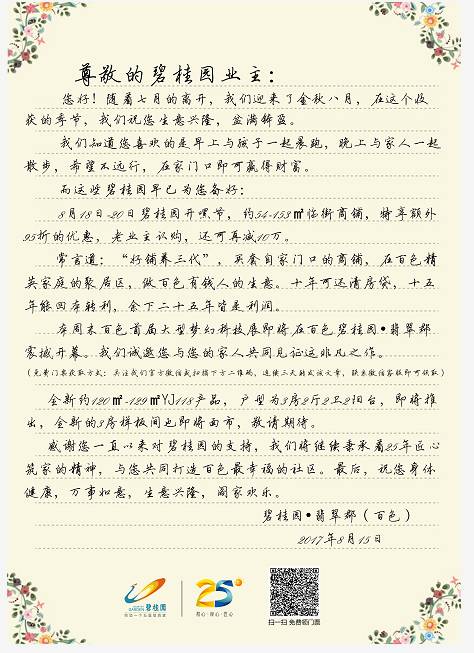 尊敬的碧桂园业主：
您好！随着七月的离开，我们迎来了金秋八月，在这个收
获的季节，我们祝您生意兴隆，盆满钵盈。
我们知道您喜欢的是早上与孩子一起晨跑，晚上与家人一起
散步，希望不远行，在家门口即可赢得财富。
而这些碧桂园早已为您备好：
8月18日-20日碧桂园开嘿节，约54-153㎡临街商铺，特享额外
95折的优惠，老业主认购，还可再减10万。
常言道：“好铺养三代”，买套自家门口的商铺，在百色精
英家庭的聚居区，做百色有钱人的生意。十年可还清房贷，十五
年能回本转利，余下二十五年皆是利润。
本周末百色首届大型梦幻科技展即将在百色碧桂园•翡翠郡
震撼开幕。我们诚邀您与您的家人共同见证这非凡之作。
（免费门票获取方式：关注我们官方微信或扫描下方二维码，连续三天转发该文章，联系微信客服即可领取）
全新约120㎡-129㎡YJ118产品，户型为3房2厅2卫2阳台，即将推
出，全新的3房样板间也即将面市，敬请期待。
感谢您一直以来对碧桂园的支持，我们将继续秉承着25年匠心
筑家的精神，与您共同打造百色最幸福的社区。最后，祝您身体
健康，万事如意，生意兴隆，阖家欢乐。
碧桂园•翡翠郡（百色）
2017年8月15日
碧桂园
GARDEN
给您一个五星级的家
25°
扫一扫 免费领门票